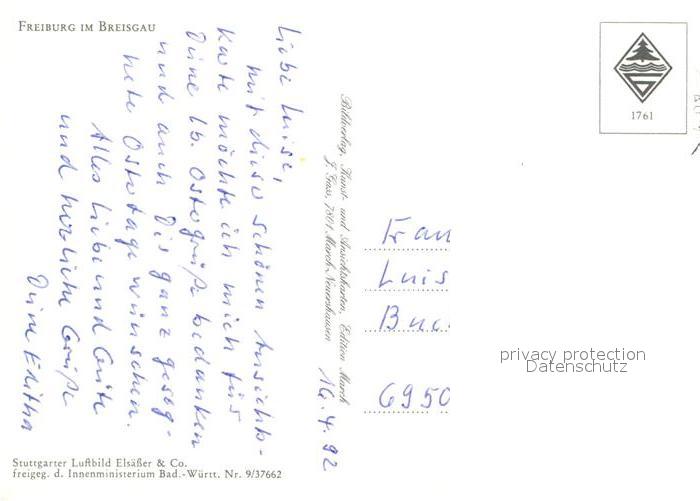 FREIBURG IM BREISGAU
Liebe Luise,
mit dieser schönen Ansichts-
karte möchte ich mich für
Deine lb. Ostergrüße bedanken
und auch Dir ganz geseg-
nete Ostertage wünschen.
Alles Liebe und Gute
und herzliche Grüße
Deine Editha
16.4.92
Bildverlag, Kunst- und Ansichtskarten, Edition March
J. Gass, 7801 March-Neuershausen
1761
Frau
Luis
6950
privacy protection
Datenschutz
Stuttgarter Luftbild Elsäßer & Co.
freigeg. d. Innenministerium Bad.-Württ. Nr. 9/37662